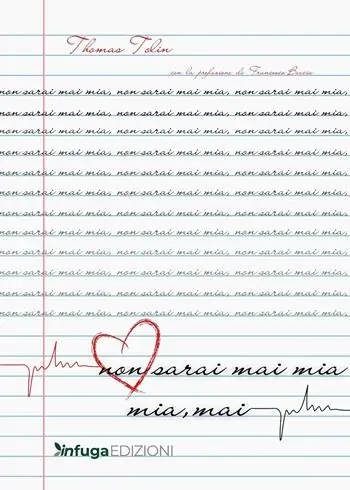 Thomas Tolin
con la prefazione di Francesca
non sarai mai mia, non sarai mai mia, non sarai mai mia,
non sarai mai mia, non sarai mai mia, non sarai mai mia,
non sarai mai mia, non sarai mai mia, non sarai mai mia,
non sarai mai mia, non sarai mai mia, non sarai mai mia,
non sarai mai mia, non sarai mai mia, non sarai mai mia,
non sarai mai mia, non sarai mai mia, non sarai mai mia,
non sarai mai mia, non sarai mai mia, non sarai mai mia,
non sarai mai mia, non sarai mai mia, non sarai mai mia,
non sarai mai mia, non sarai mai mia, non sarai mai mia,
non sarai mai mia, non sarai mai mia, non sarai mai mia,
non sarai mai mia, non sarai mai mia, non sarai mai mia,
non sarai mai mia, non sarai mai mia, non sarai mai mia,
non sarai mai mia
mia, mai
infugaEDIZIONI